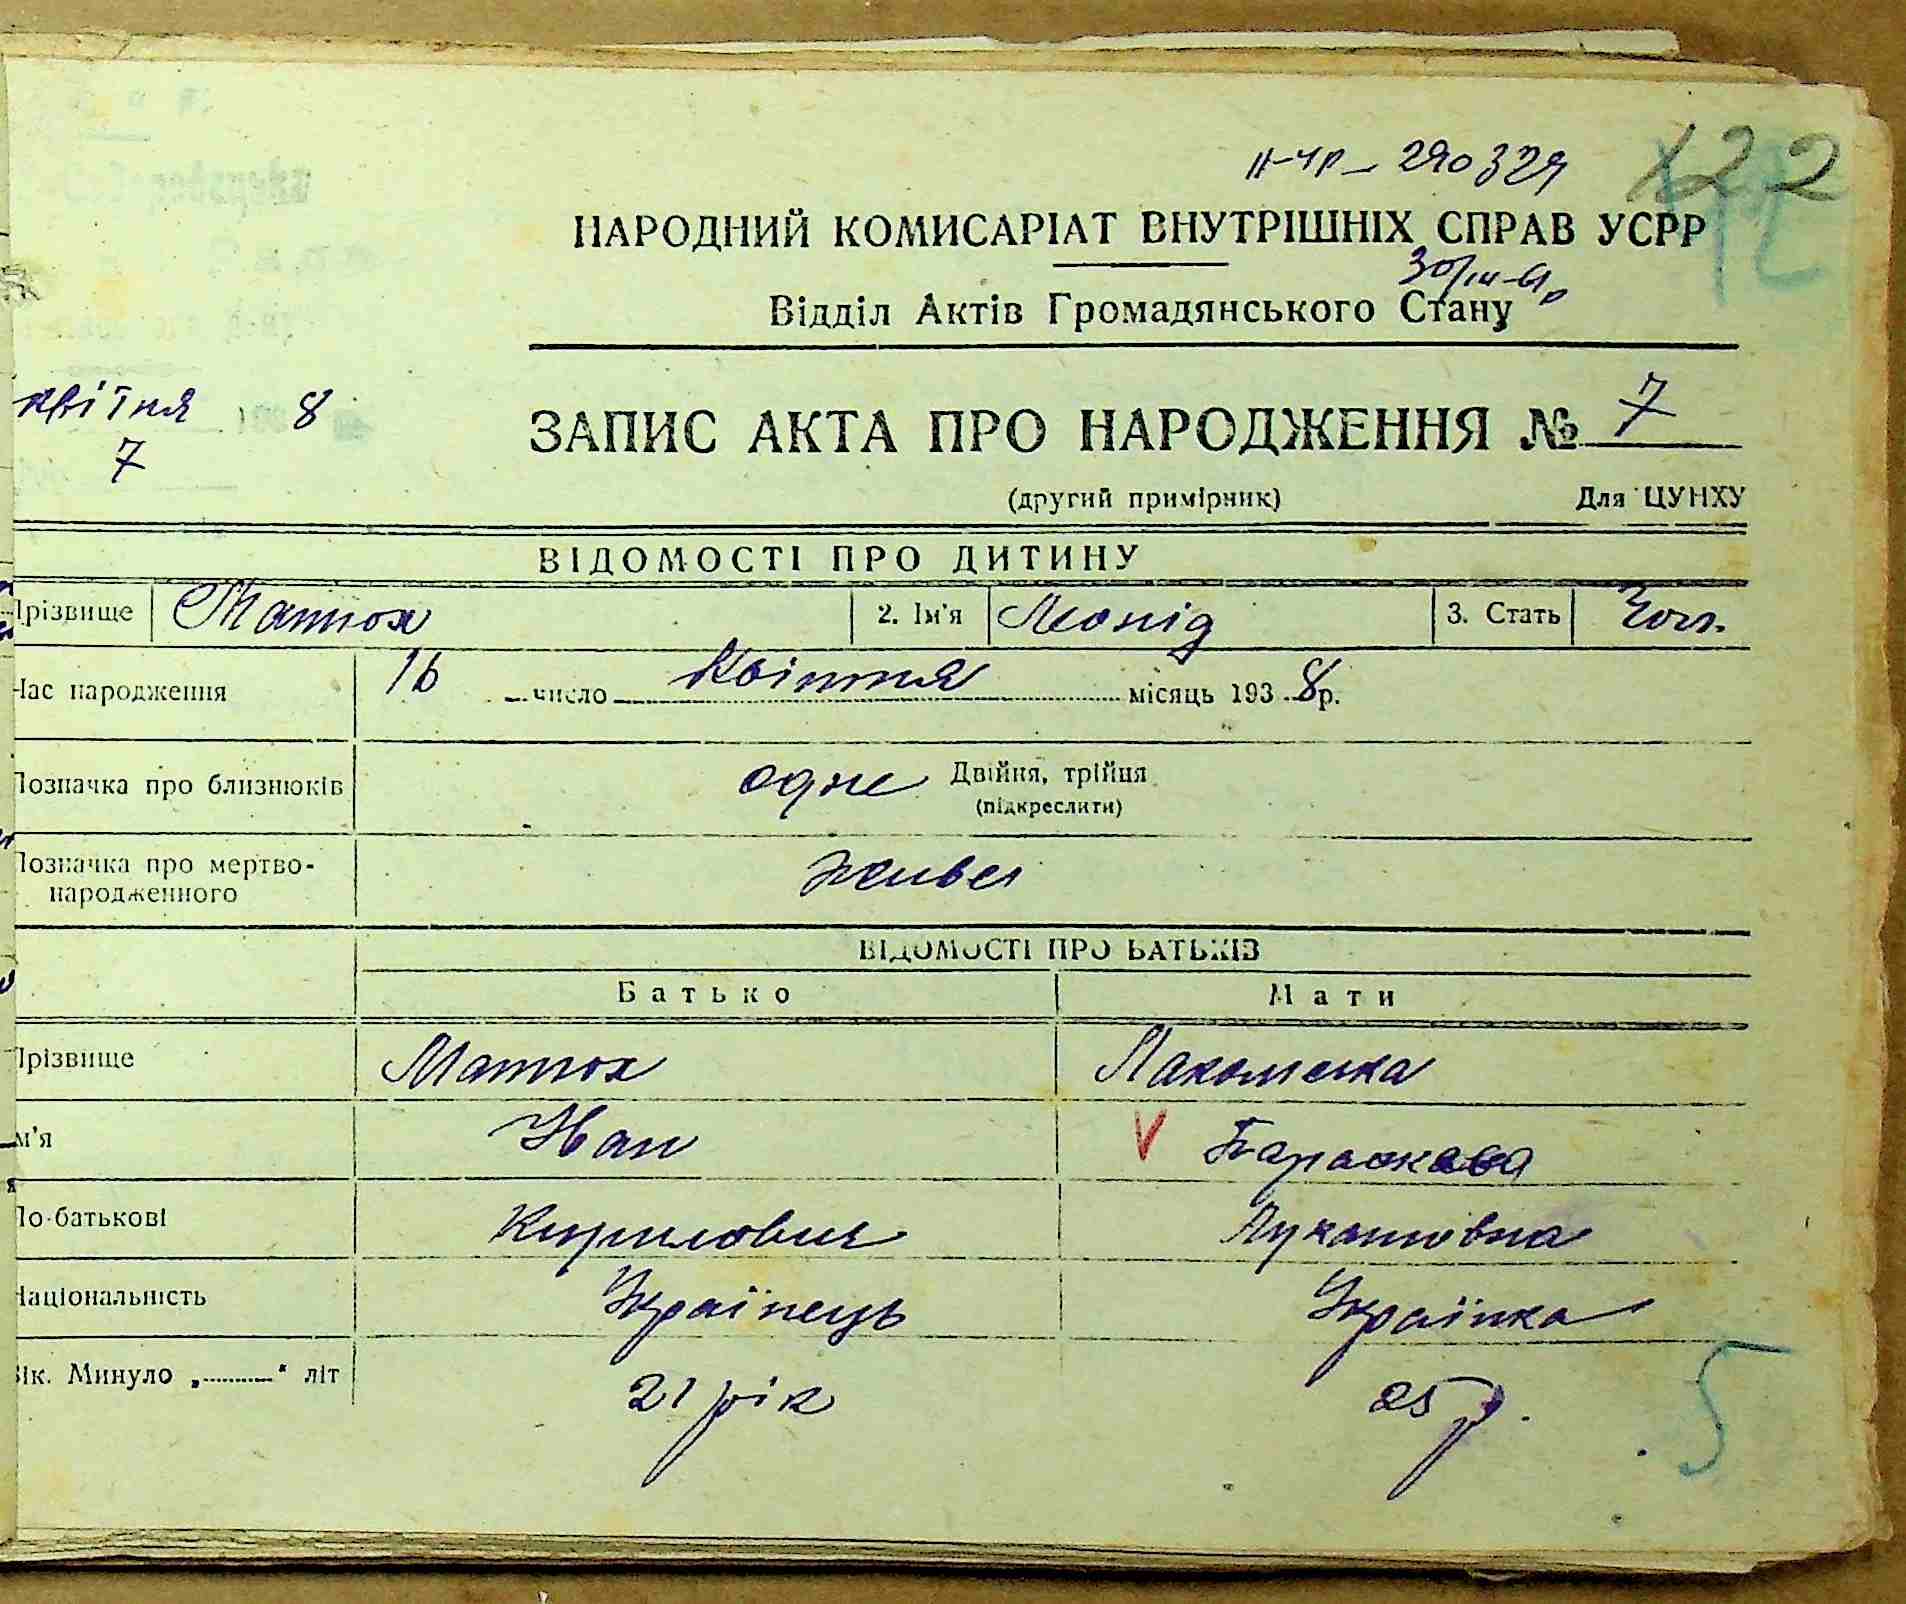 122
ІІ-ЧР - 290329
НАРОДНИЙ КОМИСАРІАТ ВНУТРІШНІХ СПРАВ УСРР
30/ІІІ-61р
Відділ Актів Громадянського Стану
квітня 8
7
ЗАПИС АКТА ПРО НАРОДЖЕННЯ № 7
(другий примірник) Для ЦУНХУ
ВІДОМОСТІ ПРО ДИТИНУ
Прізвище Матюх 2. Ім'я Леонід 3. Стать Чол.
Час народження 16 число Квітня місяць 1938р.
Позначка про близнюків одне Двійня, трійця
(підкреслити)
Позначка про мертво-
народженного живе
ВІДОМОСТІ ПРО БАТЬКІВ
Батько Мати
Прізвище Матюх Лакомська
м'я Іван V Параскева
По-батькові Кирилович Лукашовна
Національність Українець Українка
Вік. Минуло „......“ літ 21 рік 25 р.
5